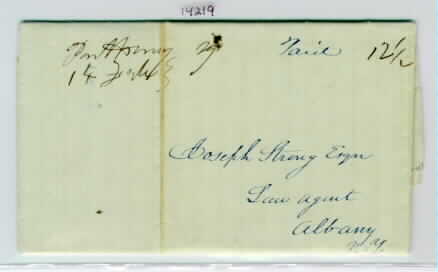 14219
Port Henry Ny Paid 12½
14 July
Joseph Strong Esqr
Law agent
Albany
N.Y.